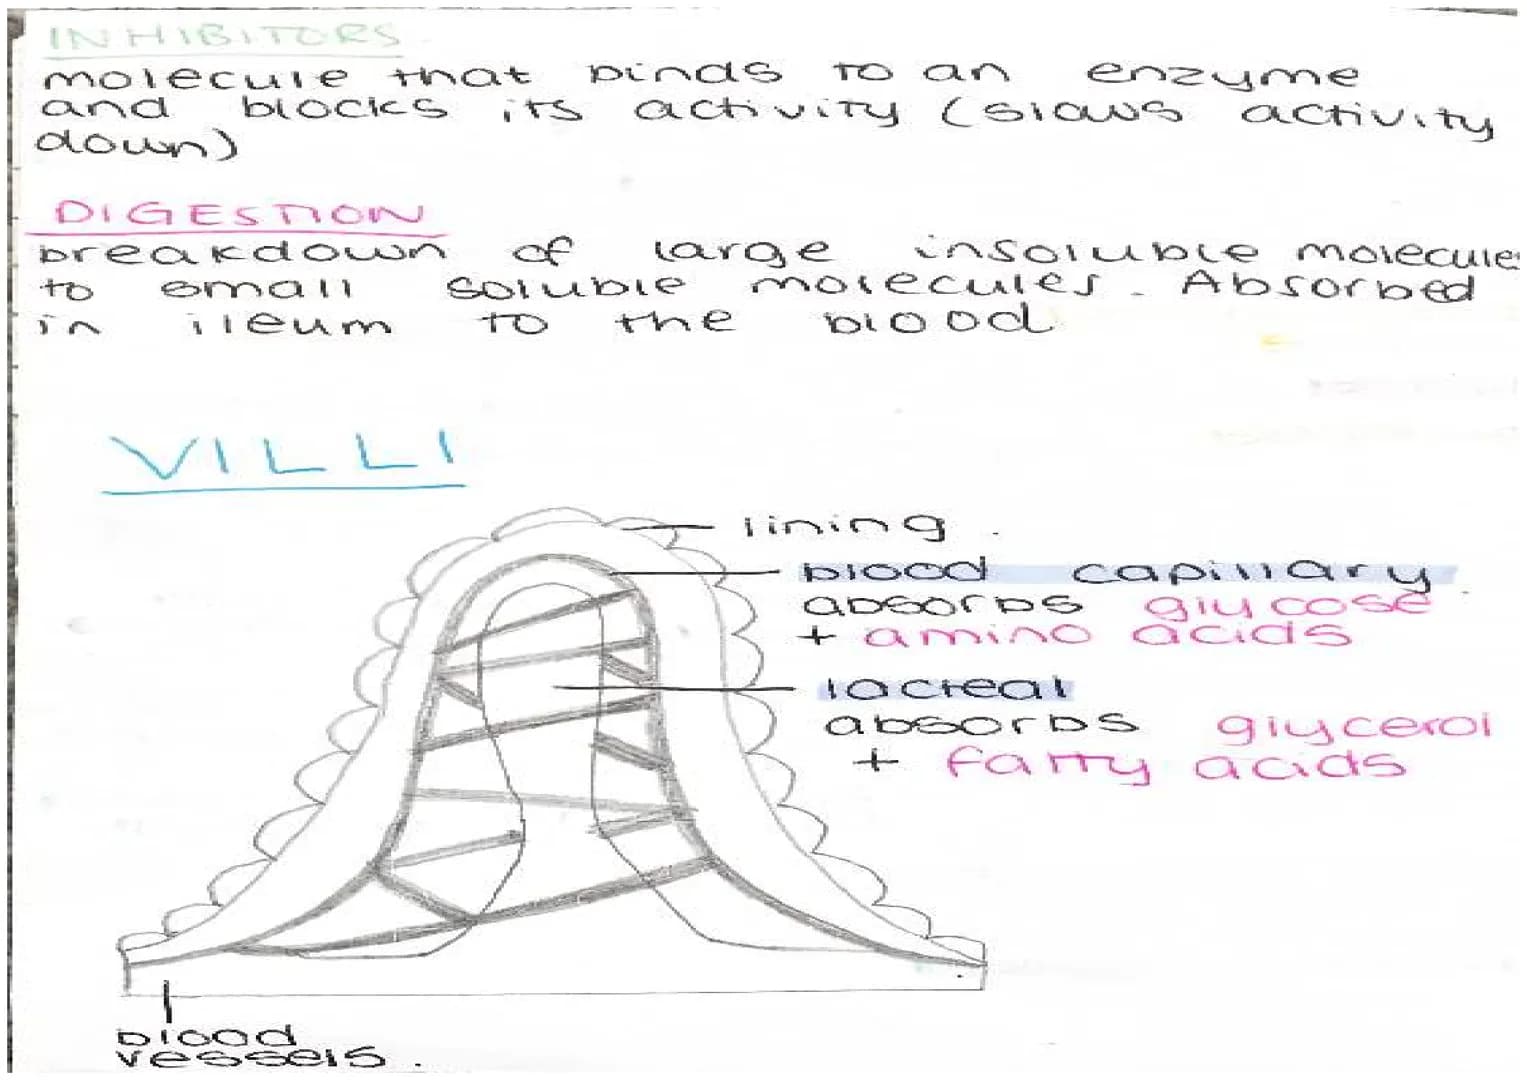 INHIBITORS
molecule that binds to an enzyme
and blocks its activity (slows activity
down)
DIGESTION
breakdown of large insoluble molecules
to small soluble molecules. Absorbed
in ileum to the blood
VILLI
lining
blood capillary
absorbs glycose
+ amino acids
lacteal
absorbs glycerol
+ fatty acids
blood
vessels.